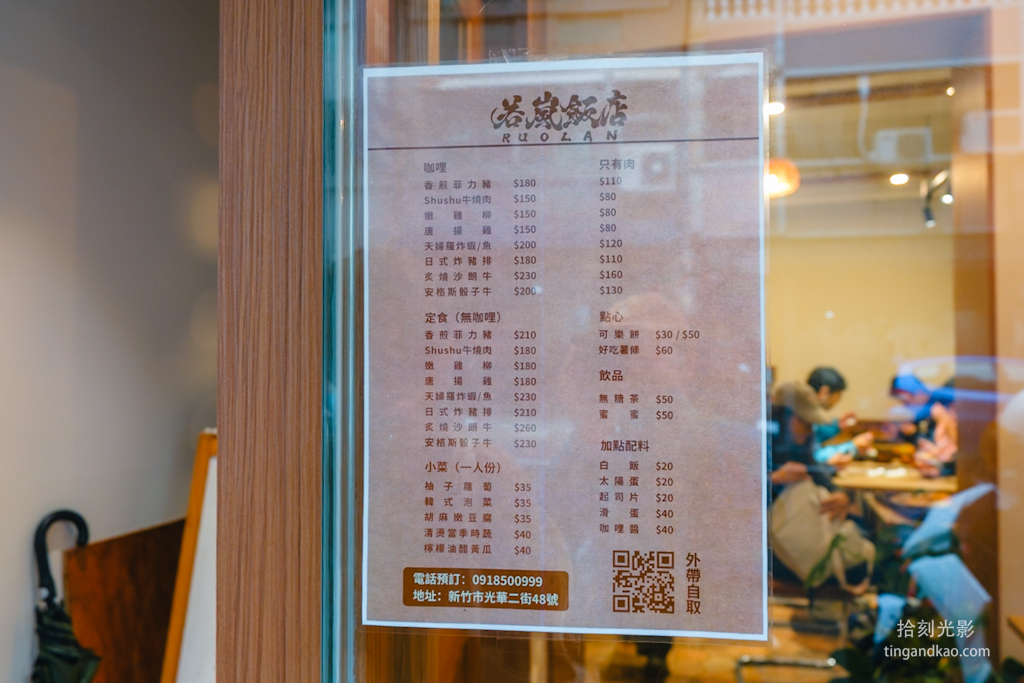 若嵐飯店
RUOLAN
咖哩
香煎菲力豬 $180
Shushu牛燒肉 $150
嫩雞柳 $150
唐揚雞 $150
天婦羅炸蝦/魚 $200
日式炸豬排 $180
炙燒沙朗牛 $230
安格斯骰子牛 $200
只有肉
$110
$80
$80
$80
$120
$110
$160
$130
定食（無咖哩）
香煎菲力豬 $210
Shushu牛燒肉 $180
嫩雞柳 $180
唐揚雞 $180
天婦羅炸蝦/魚 $230
日式炸豬排 $210
炙燒沙朗牛 $260
安格斯骰子牛 $230
小菜（一人份）
柚子蘿蔔 $35
韓式泡菜 $35
胡麻嫩豆腐 $35
清燙當季時蔬 $40
檸檬油醋黃瓜 $40
點心
可樂餅 $30 / $50
好吃薯條 $60
飲品
無糖茶 $50
蜜蜜 $50
加點配料
白飯 $20
太陽蛋 $20
起司片 $20
滑蛋 $40
咖哩醬 $40
電話預訂：0918500999
地址：新竹市光華二街48號
外帶自取
拾刻光影
tingandkao.com